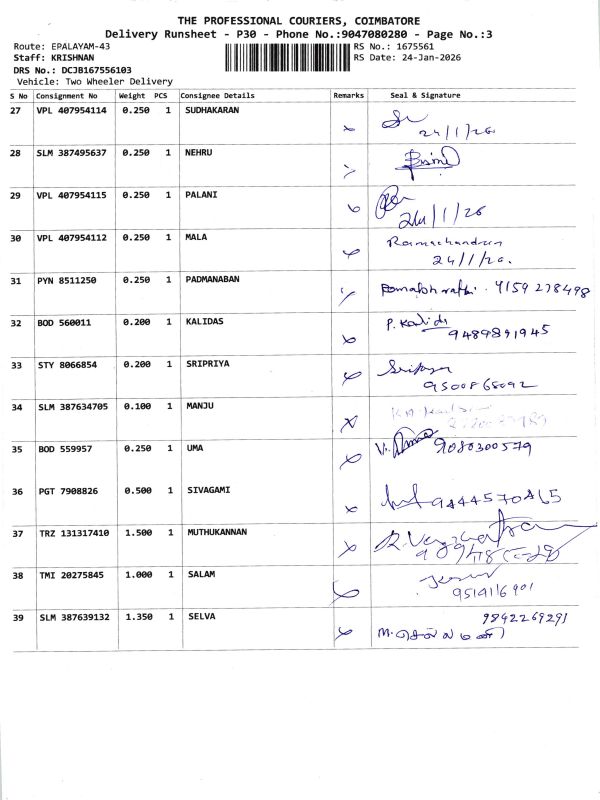 THE PROFESSIONAL COURIERS, COIMBATORE
Delivery Runsheet - P30 - Phone No.:9047080280 - Page No.:3
Route: EPALAYAM-43 RS No.: 1675561
Staff: KRISHNAN RS Date: 24-Jan-2026
DRS No.: DCJB167556103
Vehicle: Two Wheeler Delivery
S No Consignment No Weight PCS Consignee Details Remarks Seal & Signature
27 VPL 407954114 0.250 1 SUDHAKARAN
24/1/26
28 SLM 387495637 0.250 1 NEHRU
29 VPL 407954115 0.250 1 PALANI
24/1/26
30 VPL 407954112 0.250 1 MALA Ramachandran
24/1/26.
31 PYN 8511250 0.250 1 PADMANABAN 9159278498
32 BOD 560011 0.200 1 KALIDAS P. Kalidas
9489891945
33 STY 8066854 0.200 1 SRIPRIYA Sripriya
9500868092
34 SLM 387634705 0.100 1 MANJU
35 BOD 559957 0.250 1 UMA V. Uma 9080300579
36 PGT 7908826 0.500 1 SIVAGAMI 9444570465
37 TRZ 131317410 1.500 1 MUTHUKANNAN
38 TMI 20275845 1.000 1 SALAM
9514116901
39 SLM 387639132 1.350 1 SELVA 9842269291
M. செல்வமணி